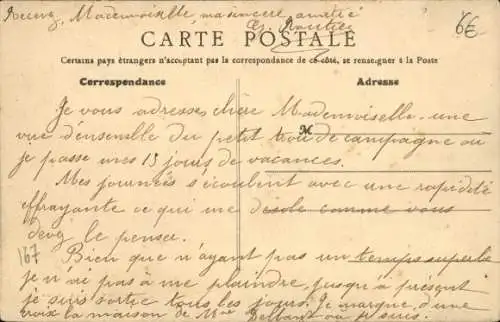 Recevez Mademoiselle, ma sincère amitié
6€
CARTE POSTALE
Certains pays étrangers n'acceptant pas la correspondance de ce côté, se renseigner à la Poste
Correspondance
Adresse
M
Je vous adresse, chère Mademoiselle, une
vue d'ensemble du petit trou de campagne ou
je passe mes 15 jours de vacances.
Mes journées s'écoulent avec une rapidité
effrayante ce qui me désole comme vous
devez le penser.
167
Bien que n'ayant pas un temps superbe
je n'ai pas à me plaindre, jusqu'à présent
je suis sortie tous les jours. Je marque d'une
croix la maison de Mme Delbant où je suis.